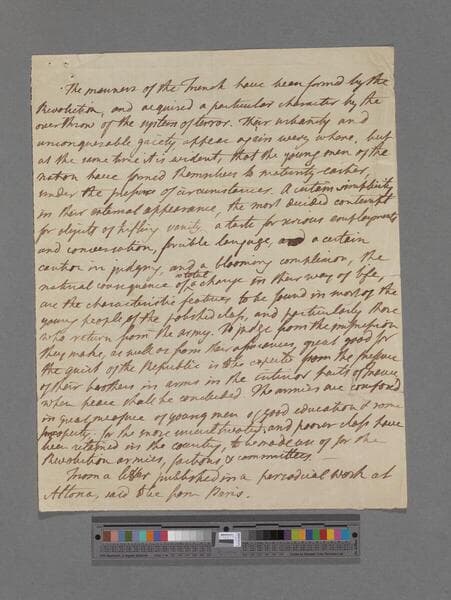 The manners of the French have been formed by the
Revolution, and acquired a particular character by the
overthrow of the system of terror. Their urbanity and
unconquerable gaiety appear again every where, but
at the same time it is evident, that the young men of the
nation have formed themselves to maturity earlier,
under the pressure of circumstances. A certain simplicity
in their external appearance, the most decided contempt
for objects of trifling vanity a taste for serious employments
and conversation, forcible language, and a certain
caution in judging, and a blooming complexion, the
natural consequence of a total change in their way of life,
are the characteristic features to be found in most of the
young people of the polished class, and particularly those
who return from the army. To judge from the impression
they make, as well as from their assurances, great good for
the quiet of the Republic is to be expected from the presence
of their brothers in arms in the interior parts of France,
when peace shall be concluded. The armies are composed
in great measure of young men of good education & some
property: for the more uncultivated and poorer class have
been retained in the country, to be made use of for the
Revolution armies, factions & committees. —
From a letter published in a periodical work at
Altona, said to be from Paris.